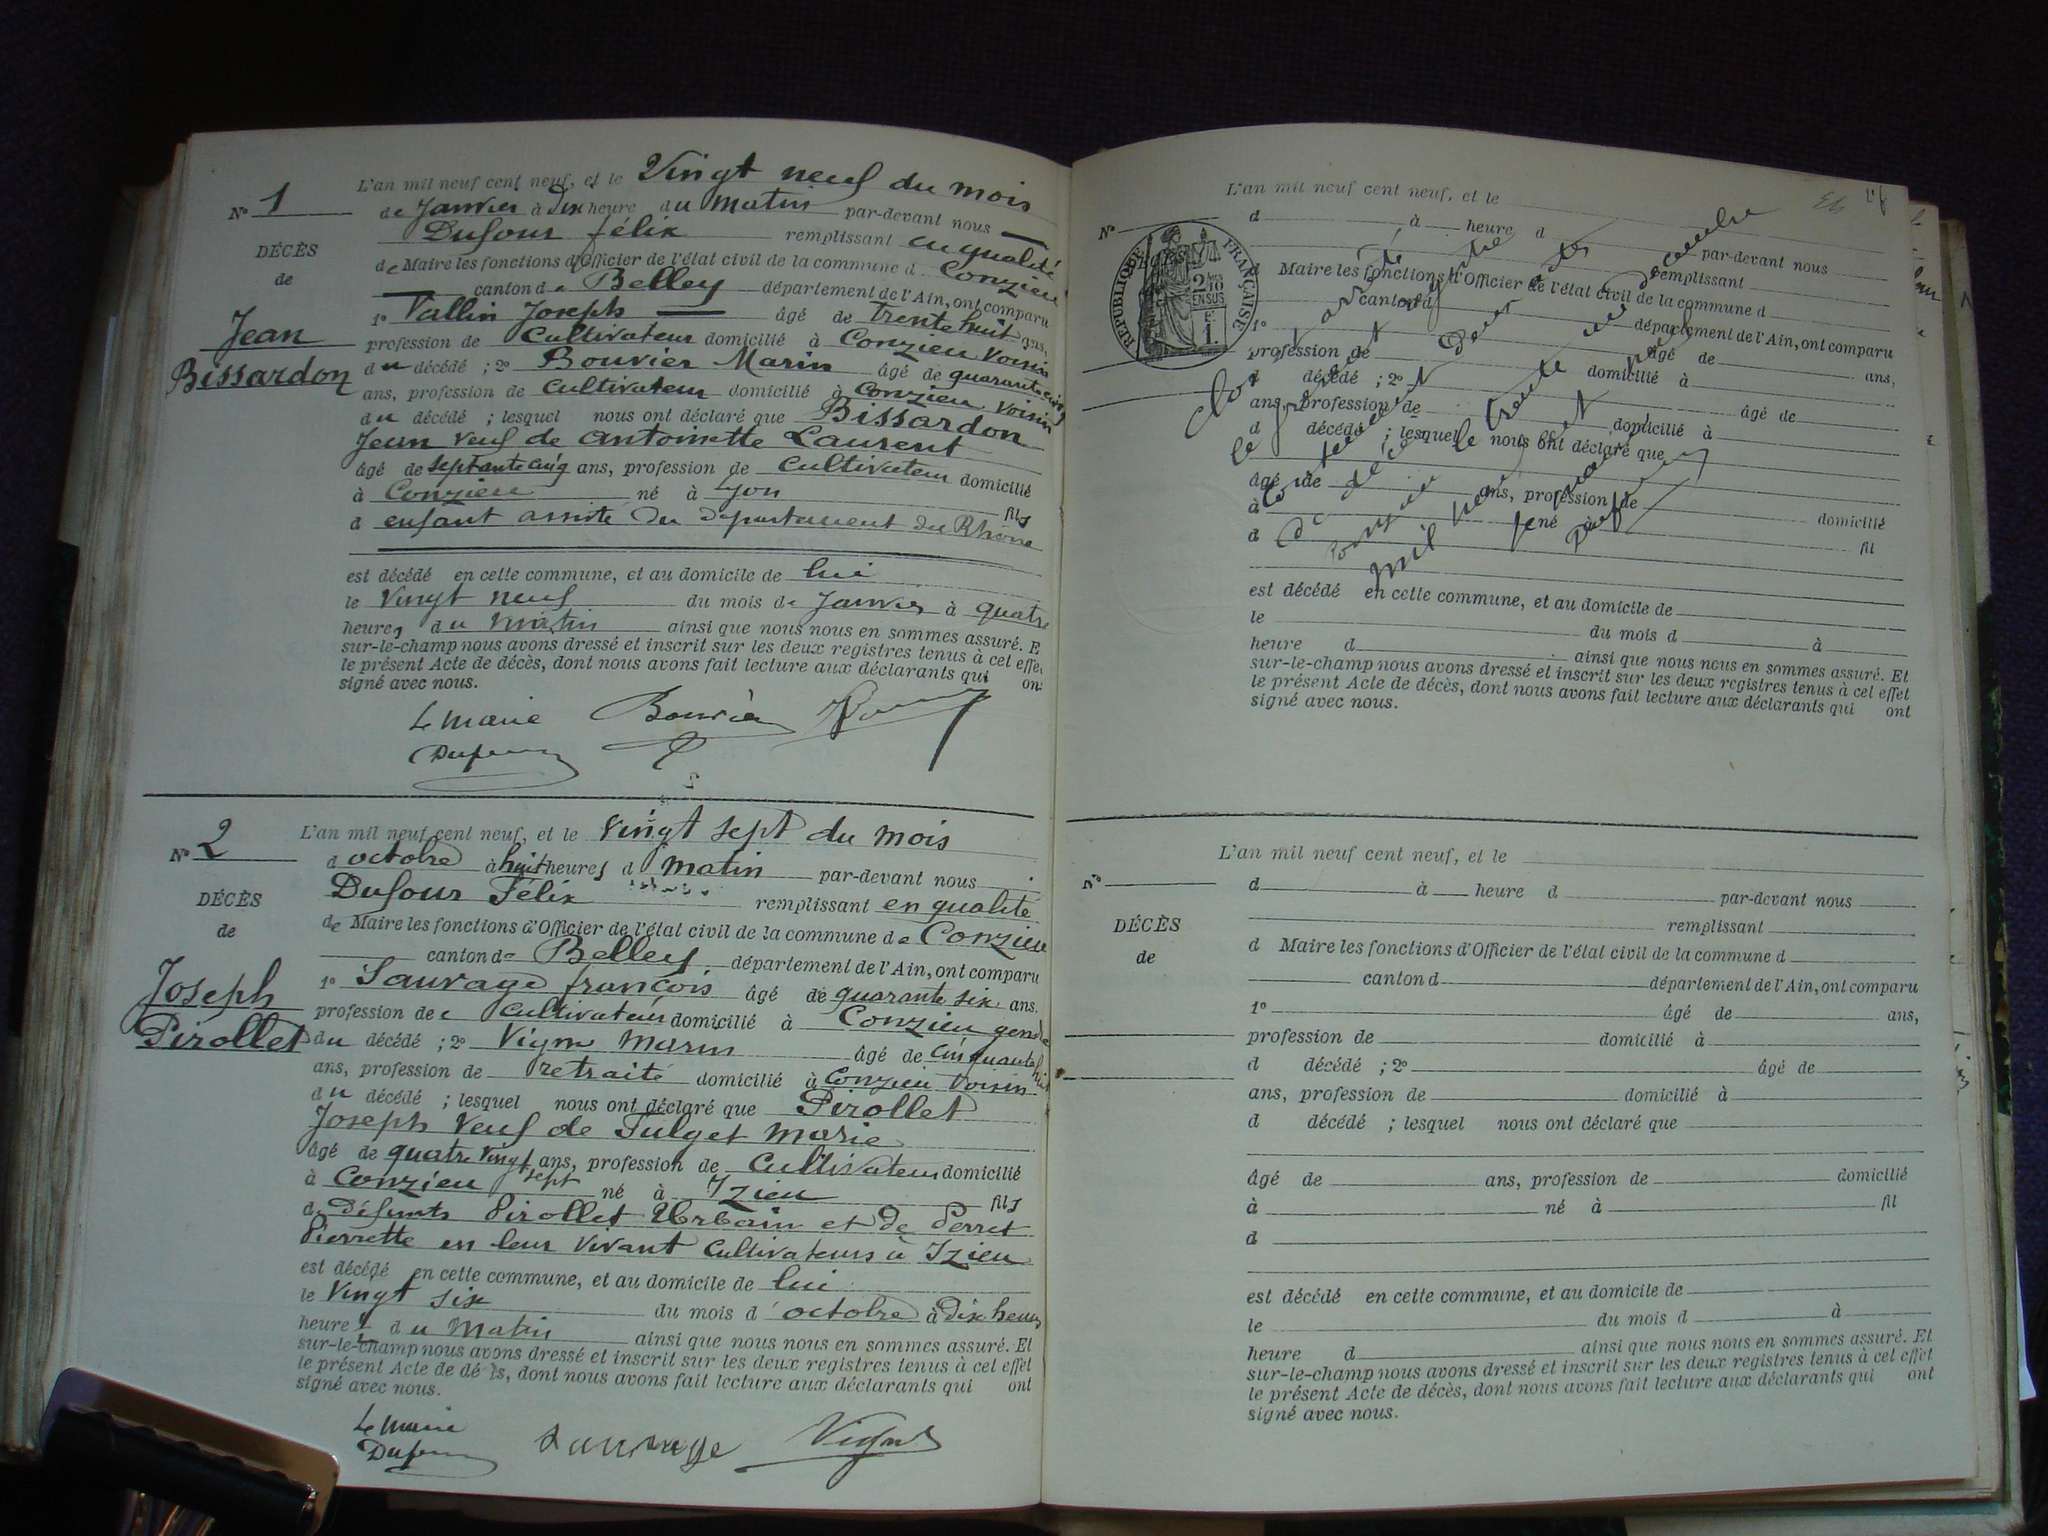 L'an mil neuf cent neuf, et le Vingt neuf du mois
No 1
de Janvier à Dix heure du Matin par-devant nous
Dufour félix remplissant en qualité
DÉCÈS
de Maire les fonctions d'Officier de l'état civil de la commune d Conzieu
de
canton de Belley département de l'Ain, ont comparu
1o Vallin Joseph âgé de Trente huit ans,
Jean
profession de Cultivateur domicilié à Conzieu Voisin
Bissardon
du décédé ; 2o Bouvier Marin âgé de quarante cinq
ans, profession de cultivateur domicilié à Conzieu Voisin
du décédé ; lesquel nous ont déclaré que Bissardon
Jean Veuf de Antoinette Laurent
âgé de septante cinq ans, profession de Cultivateur domicilié
à Conzieu né à Lyon fils
d enfant assisté du département du Rhône
est décédé en cette commune, et au domicile de lui
le Vingt neuf du mois de Janvier à quatre
heures du Matin ainsi que nous nous en sommes assuré. E
sur-le-champ nous avons dressé et inscrit sur les deux registres tenus à cel effet
le présent Acte de décès, dont nous avons fait lecture aux déclarants qui ont
signé avec nous.
Le maire Bouvier
Dufour
L'an mil neuf cent neuf, et le Vingt sept du mois
No 2
d octobre à huit heures d Matin par-devant nous
Dufour Félix remplissant en qualité
DÉCÈS
de Maire les fonctions d'Officier de l'état civil de la commune de Conzieu
de
canton de Belley département de l'Ain, ont comparu
1o Sauvage françois âgé de quarante six ans.
Joseph
profession de Cultivateur domicilié à Conzieu gendre
Pirollet
du décédé ; 2o Vign Marin âgé de Cinquante huit
ans, profession de retraité domicilié à Conzieu Voisin
du décédé ; lesquel nous ont déclaré que Pirollet
Joseph Veuf de Fulget Marie
âgé de quatre vingt sept ans, profession de Cultivateur domicilié
à Conzieu né à Izieu fils
de Défunts Pirollet Urbain et de Perret
Pierrette en leur Vivant Cultivateurs à Izieu
est décédé en cette commune, et au domicile de lui
le Vingt six du mois d octobre à Dix heures
heure du Matin ainsi que nous nous en sommes assuré. Et
sur-le-champ nous avons dressé et inscrit sur les deux registres tenus à cel effet
le présent Acte de décès, dont nous avons fait lecture aux déclarants qui ont
signé avec nous.
Le Maire
Dufour Sauvage
L'an mil neuf cent neuf, et le
No
d à heure d par-devant nous
remplissant
RÉPUBLIQUE FRANÇAISE
2/10 EN SUS
d Maire les fonctions d'Officier de l'état civil de la commune d
canton d département de l'Ain, ont comparu
1o âgé de ans,
profession de domicilié à
d décédé ; 2o âgé de
ans, profession de domicilié à
d décédé ; lesquel nous ont déclaré que
âgé de ans, profession de domicilié
à né à fil
d
Clos et arrêté
le présent registre
contenant deux actes
de décès le trente un décembre
mil neuf cent neuf
est décédé en cette commune, et au domicile de
le du mois d à
heure d ainsi que nous nous en sommes assuré. Et
sur-le-champ nous avons dressé et inscrit sur les deux registres tenus à cel effet
le présent Acte de décès, dont nous avons fait lecture aux déclarants qui ont
signé avec nous.
L'an mil neuf cent neuf, et le
No
d à heure d par-devant nous
remplissant
DÉCÈS
d Maire les fonctions d'Officier de l'état civil de la commune d
de
canton d département de l'Ain, ont comparu
1o âgé de ans,
profession de domicilié à
d décédé ; 2o âgé de
ans, profession de domicilié à
d décédé ; lesquel nous ont déclaré que
âgé de ans, profession de domicilié
à né à fil
d
est décédé en cette commune, et au domicile de
le du mois d à
heure d ainsi que nous nous en sommes assuré. Et
sur-le-champ nous avons dressé et inscrit sur les deux registres tenus à cel effet
le présent Acte de décès, dont nous avons fait lecture aux déclarants qui ont
signé avec nous.